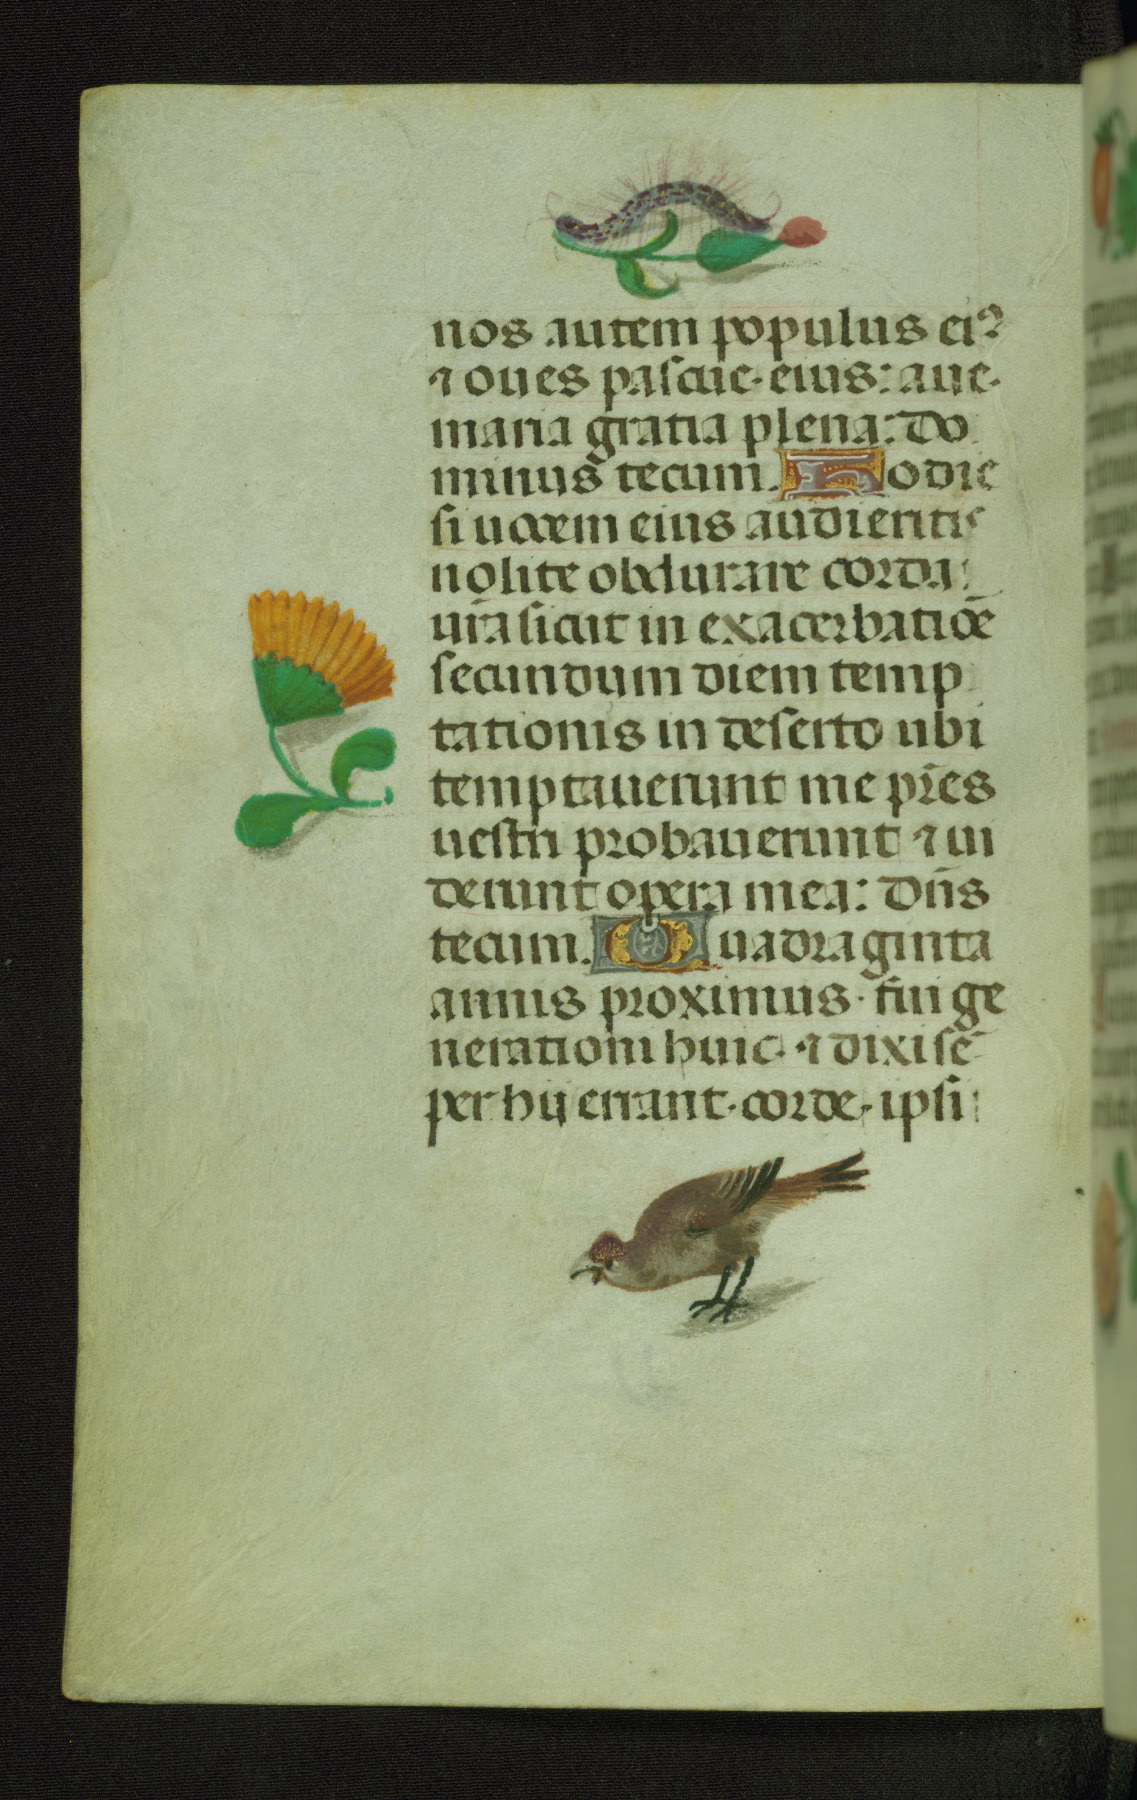 nos autem populus eiꝰ
⁊ oues pascue. eius: aue.
maria gratia plena: Do
minus tecum. Hodie
si uocem eius audieritis
nolite obdurare corda
ur̄a sicut in exacerbatiōe
secundum diem temp
tationis in deserto ubi
temptauerunt me pr̄es
uestri probauerunt ⁊ ui
derunt opera mea: Dn̄s
tecum. Quadraginta
annis proximus. fui ge
nerationi huic. ⁊ dixi sē
per hij errant. corde. ipsi